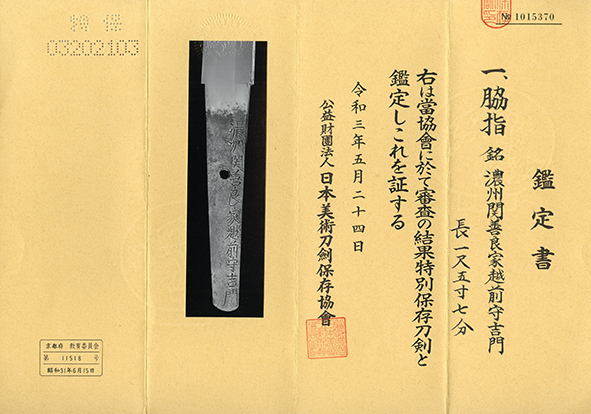 № 1015370
鑑定書
一、脇指 銘 濃州関善良家越前守吉門
長 一尺五寸七分
右は當協會に於て審査の結果特別保存刀剣と
鑑定しこれを証する
令和三年五月二十四日
公益財團法人 日本美術刀劍保存協會
濃州関善良家越前守吉門
特保
03202103
京都府 教育委員会
第 11518 号
昭和31年6月15日